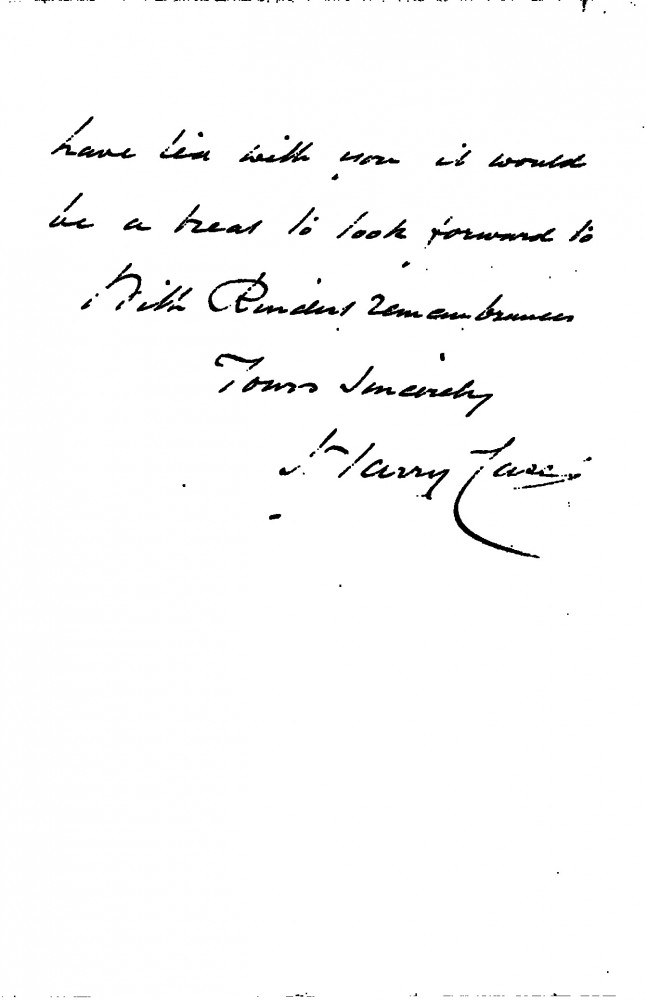 have tea with you it would
be a treat to look forward to
With Kindest remembrances
Yours Sincerely
Harry